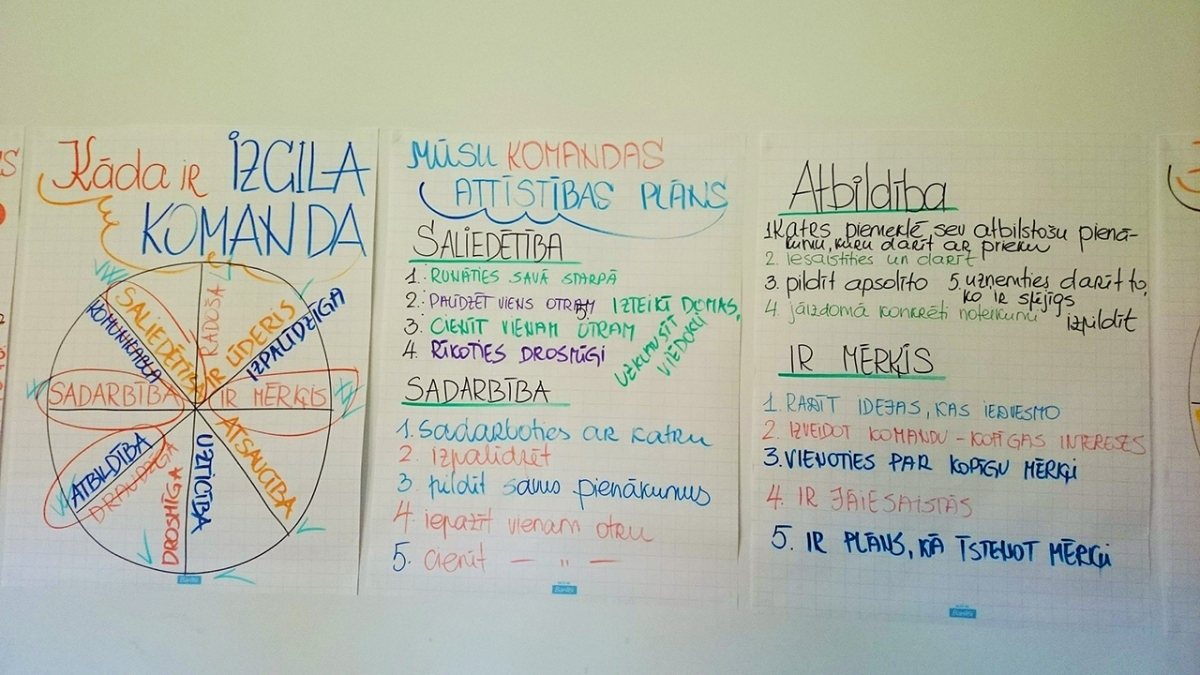 Kāda ir IZCILA
KOMANDA
RADOŠA
SALIEDĒTĪBA
KOMUNICABLA
IR LĪDERIS
IZPALĪDZĪGA
SADARBĪBA
IR MĒRĶIS
ATBILDĪBA
DRAUDZĪGA
DROSMĪGA
UZTICĪBA
ATSAUCĪBA
MŪSU KOMANDAS
ATTĪSTĪBAS PLĀNS
SALIEDĒTĪBA
1. RUNĀTIES SAVĀ STARPĀ
2. PALĪDZĒT VIENS OTRAM
3. CIENĪT VIENAM OTRAM
4. RĪKOTIES DROSMĪGI
5. IZTEIKT DOMAS,
UZKLAUSĪT
VIEDOKLI
SADARBĪBA
1. Sadarboties ar katru
2. izpalīdzēt
3. pildīt savus pienākumus
4. iepazīt vienam otru
5. Cienīt — " —
Atbildība
1. Katrs piemeklē sev atbilstošu pienā-
kumu, kuru darīt ar prieku
2. iesaistīties un darīt
3. pildīt apsolīto
4. jāizdomā konkrēti noteikumi
5. uzņemties darīt to,
ko ir spējīgs
izpildīt
IR MĒRĶIS
1. RADĪT IDEJAS, KAS IEDVESMO
2. IZVEIDOT KOMANDU - KOPĪGAS INTERESES
3. VIENOTIES PAR KOPĪGU MĒRĶI
4. IR JĀIESAISTĀS
5. IR PLĀNS, KĀ ĪSTENOT MĒRĶI